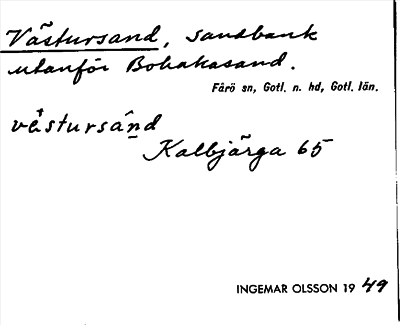 Västursand, sandbank
utanför Bohakasand.
Fårö sn, Gotl. n. hd, Gotl. län.
västursand
Kalbjärga 65
INGEMAR OLSSON 19 49